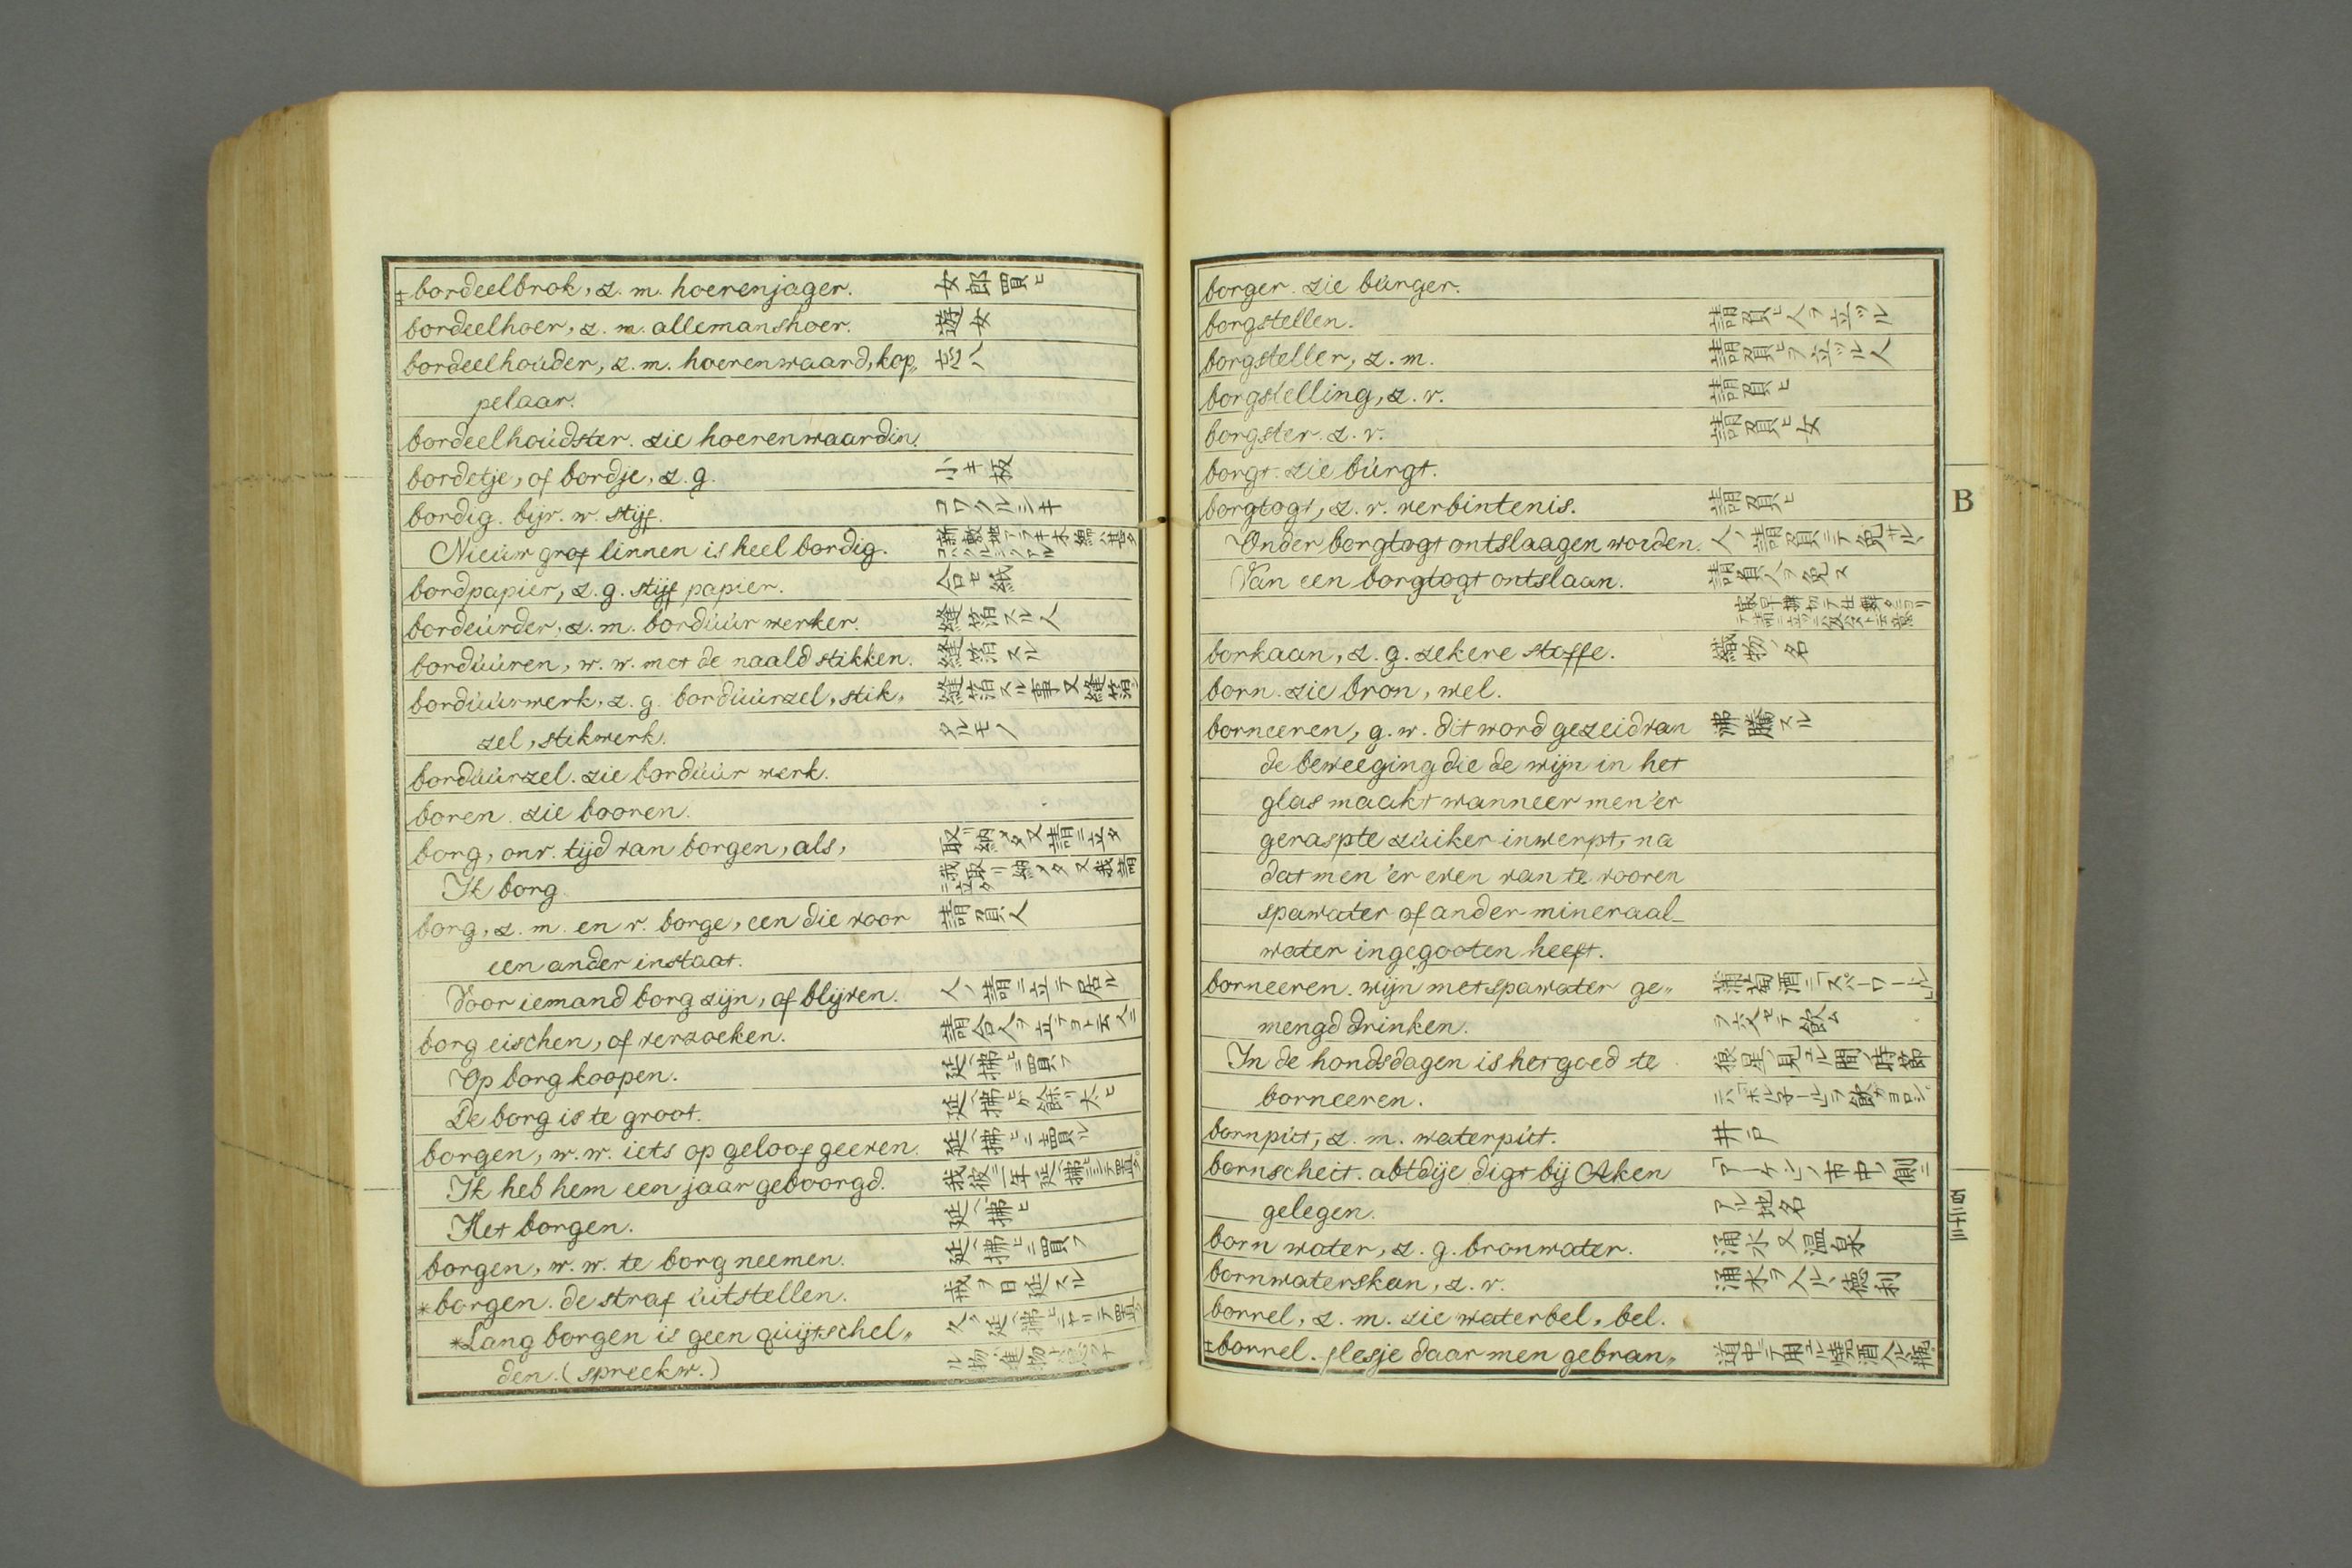 ‡bordeelbrok, z. m. hoerenjager. 女郎買ヒ
bordeelhoer, z. m. allemanshoer. 遊女
bordeelhoúder, z. m. hoerenwaard, kop„ 忘八
pelaar.
bordeelhoúdster. zie hoerenwaardin.
bordetje, of bordje, z. g. 小キ板
bordig. bijv. w. stijf. コワクルシキ
Nieúw grof linnen is heel bordig.
bordpapier, z. g. stijf papier. 合セ紙
bordeúrder, z. m. bordúúr werker. 縫箔スル人
bordúúren, w. w. met de naald stikken. 縫箔スル
bordúúrwerk, z. g. bordúúrzel, stik„ 縫箔スル事又縫箔シ
zel, stikwerk. タルモノ
bordúúrzel. zie bordúúr werk.
boren. zie booren.
borg, onv. tijd van borgen, als, 取リ納メタ又請ニ立タ
Ik borg. 我取リ納メタ又我請ニ立タ
borg, z. m. en v. borge, een die voor 請負人
een ander instaat.
Voor iemand borg zijn, of blijven. 人ノ請ニ立テ居ル
borg eischen, of verzoeken. 請合人ヲ立テヨト云
Op borg koopen. 延ヘ拂ヒニ買フ
De borg is te groot. 延ヘ拂ヒガ餘リ大ヒ
borgen, w. w. iets op geloof geeven. 延ヘ拂ヒニ賣ル
Ik heb hem een jaar geboorgd. 我彼ニ一年延ヘ拂ヒニシテ置タ
Het borgen. 延ヘ拂ヒ
borgen, w. w. te borg neemen. 延ヘ拂ヒニ買フ
*borgen. de straf úitstellen. 戒ヲ日延スル
*Lang borgen is geen qúijtschel„
den. (spreekw.)
borger. zie búrger.
borgstellen. 請負ヒ人ヲ立ツル
borgsteller, z. m. 請負ヒヲ立ツル人
borgstelling, z. v. 請負ヒ
borgster. z. v. 請負ヒ女
borgt. zie búrgt.
borgtogt, z. v. verbintenis. 請負ヒ
Onder borgtogt ontslaagen worden. 人ノ請負ニテ免サルヽ
Van een borgtogt ontslaan. 請負人ヲ免ス
borkaan, z. g. zekere stoffe. 織物ノ名
born. zie bron, wel.
borneeren, g. w. dit word gezeid van 沸騰スル
de beweeging die de wijn in het
glas maakt wanneer men'er
geraspte zúiker inwerpt, na
dat men 'er even van te vooren
spawater of ander mineraal_
water ingegooten heeft.
borneeren. wijn met spawater ge„ 蒲萄酒ニ「スパーワートル」
mengd drinken. ヲ交セテ飲ム
In de hondsdagen is het goed te 狼星ノ見ユル間ノ時節
borneeren. ニハ「ボルネール」ヲ飲ガヨロシ
bornpút, z. m. waterpút. 井戸
bornscheit. abtdije digt bij Aken 「アーケン」ノ市中ノ側ニ
gelegen. アル地名
born water, z. g. bronwater. 涌水又温泉
bornwaterskan, z. v. 涌水ヲ入ルヽ徳利
borrel, z. m. zie waterbel, bel.
‡borrel. flesje daar men gebran„ 道中ニテ用ユル焼酒入ルヽ瓶
B
百二十三